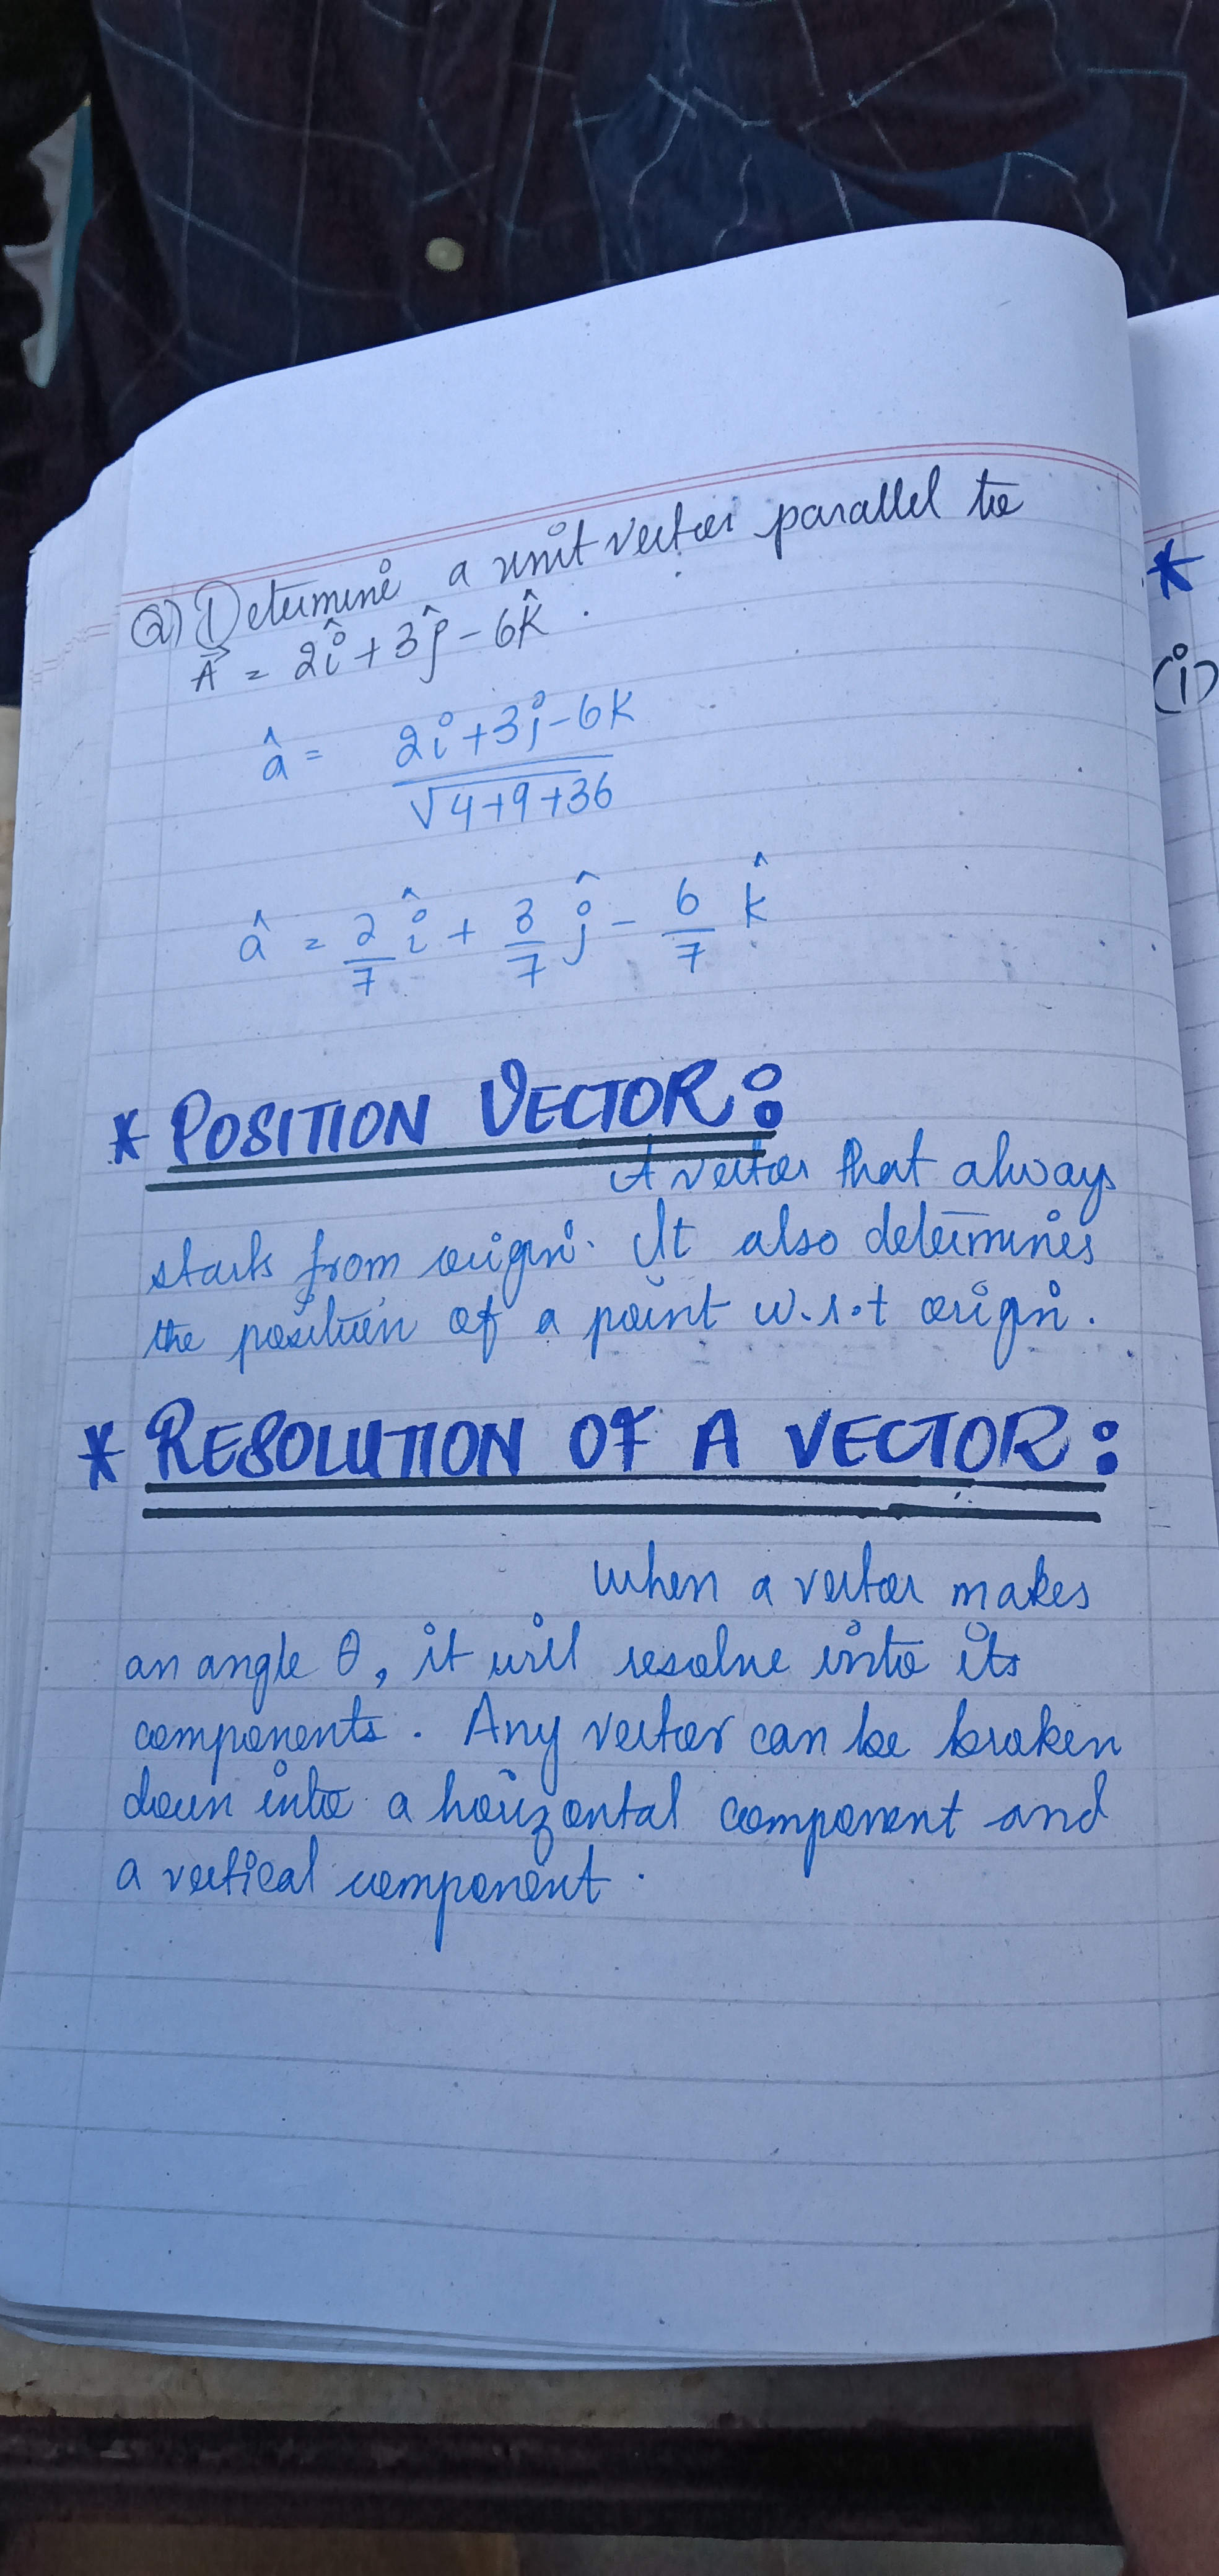 Q) Determine a unit vector parallel to
A⃗ = 2î + 3ĵ - 6k̂ .
â = 2i + 3j - 6k / √4+9+36
â = 2/7 î + 3/7 ĵ - 6/7 k̂
* POSITION VECTOR:
A vector that always
starts from origin. It also determines
the position of a point w.r.t origin.
* RESOLUTION OF A VECTOR:
When a vector makes
an angle θ, it will resolve into its
components. Any vector can be broken
down into a horizontal component and
a vertical component.
*
(i)